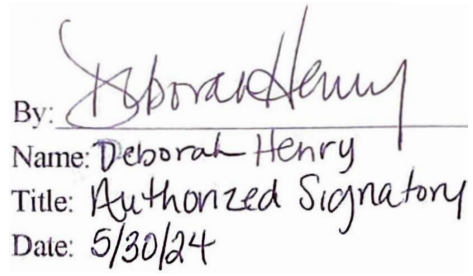 By: Deborah Henry
Name: Deborah Henry
Title: Authorized Signatory
Date: 5/30/24